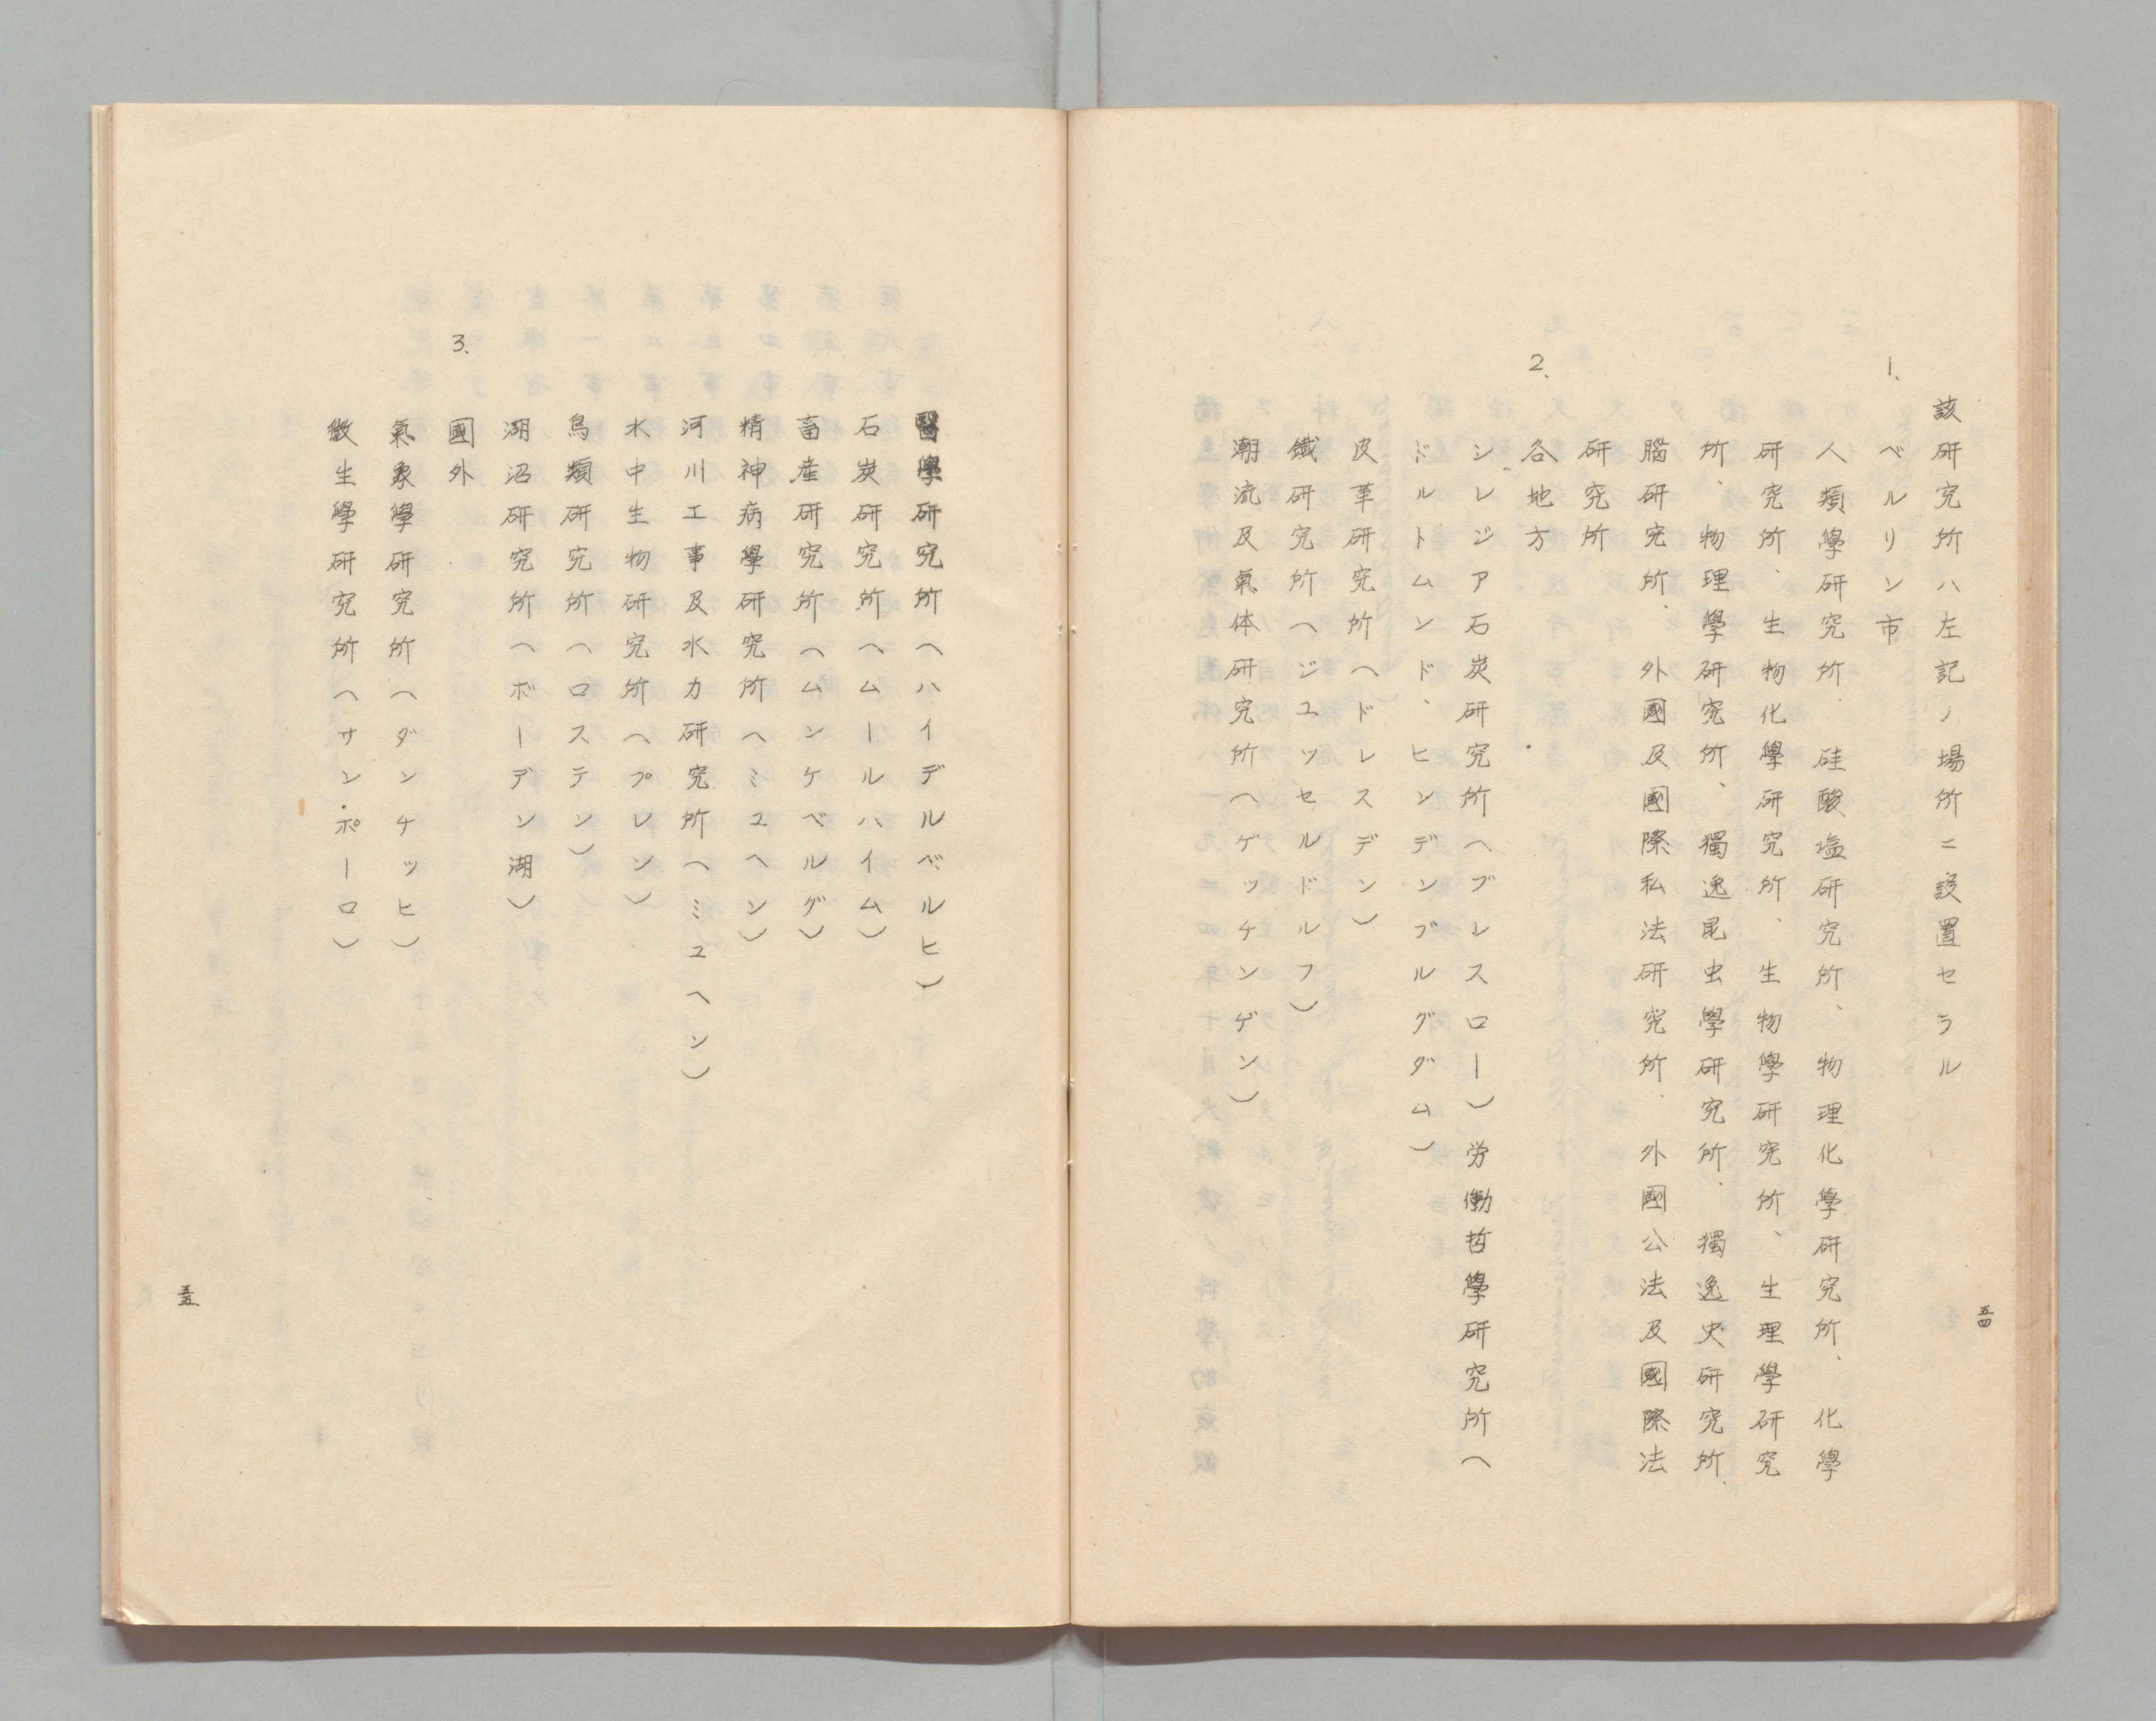 該研究所ハ左記ノ場所ニ設置セラル
1、ベルリン市
人類學研究所、硅酸塩研究所、物理化学研究所、化學
研究所、生物化學研究所、生物學研究所、生理學研究
所、物理學研究所、獨逸昆虫學研究所、獨逸史研究所、
腦研究所、外國及國際私法研究所、外國公法及國際法
研究所
2、各地方
シレジア石炭研究所(ブレスロー)労働哲學研究所(
ドルトムンド、ヒンデンブルグダム)
皮革研究所(ドレスデン)
鐵研究所(ジユツセルドルフ)
潮流及氣体研究所(ゲッチンゲン)
五四
醫學研究所(ハイデルベルヒ)
石炭研究所(ムールハイム)
畜産研究所(ムンケベルグ)
精神病學研究所(ミユヘン)
河川工事及水力研究所(ミユヘン)
水中生物研究所(プレン)
鳥類研究所(ロステン)
湖沼研究所(ボーデン湖)
3、國外
氣象學研究所(ダンチッヒ)
微生學研究所(サン・ポーロ)
五五